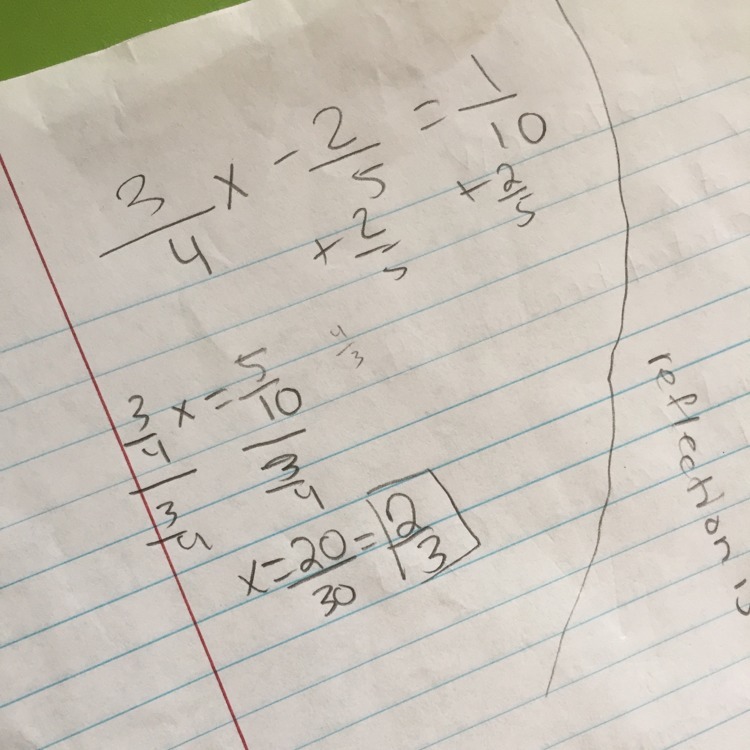 3/4 x - 2/5 = 1/10
+ 2/5 + 2/5
4/3
3/4 x = 5/10
3/4 3/4
x = 20/30 = 2/3
reflection is